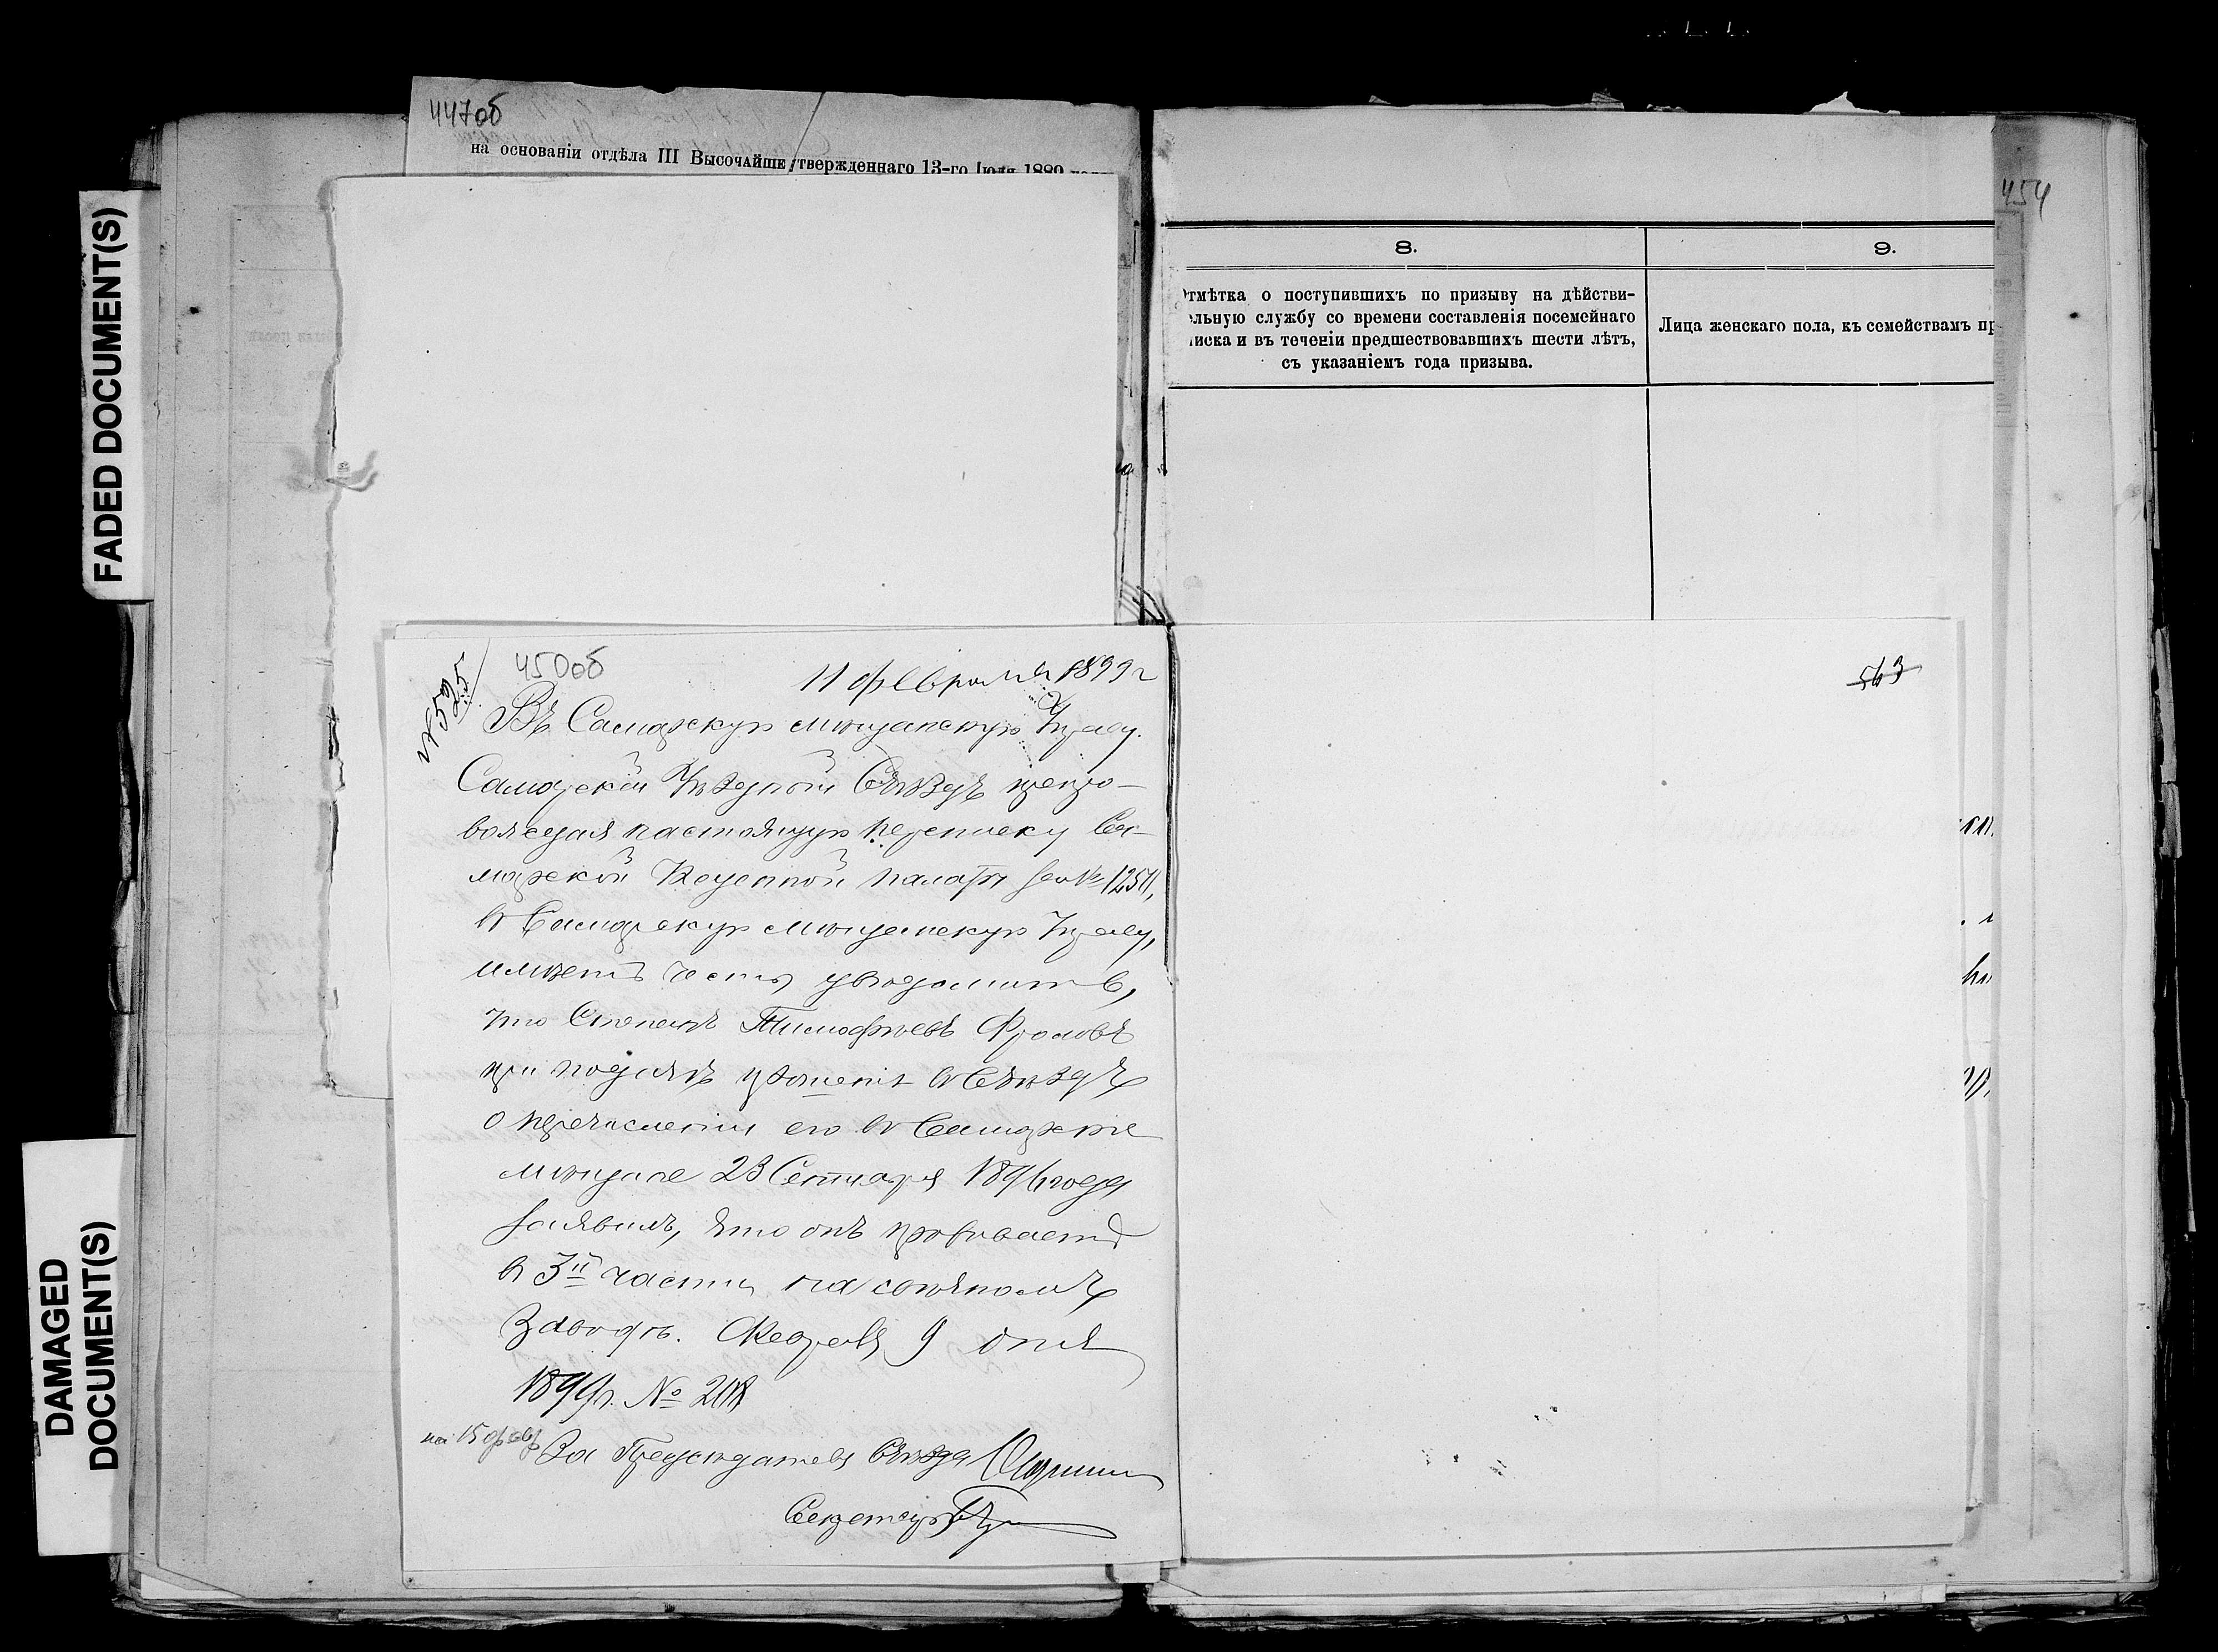 447об
на основаніи отдѣла III Высочайше утвержденнаго 13-го Іюля 1889
FADED DOCUMENT(S)
DAMAGED
DOCUMENT(S)
454
8.
9.
Отмѣтка о поступившихъ по призыву на дѣйстви-
ельную службу со времени составленія посемейнаго
писка и въ теченіи предшествовавшихъ шести лѣтъ,
съ указаніемъ года призыва.
Лица женскаго пола, къ семействамъ пр
№ 525
450об
11 февраля 1899 г
Въ Самарскую мѣщанскую Управу.
Самарскій Уѣздный Съѣздъ препро-
вождая настоящую переписку Са-
марской Казенной палаты за №
въ Самарскую мѣщанскую Управу,
имѣетъ честь увѣдомить,
что Степанъ Тимофѣевъ Фроловъ
при подачѣ прошенія въ Съѣздъ
о перечисленіи его въ Самарскіе
мѣщане 23 Сентября 1896 года
заявилъ, что онъ проживаетъ
въ 3й части на
Заводѣ. Февраля 9 дня
1899 г. № 208
на 15 фев
За Предсѣдателя Съѣзда
Секретарь
563